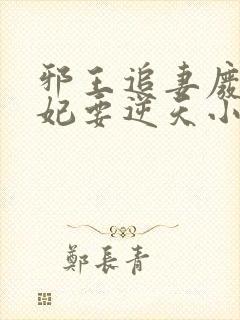 邪王追妻廢
妃要逆天小
鄭長青